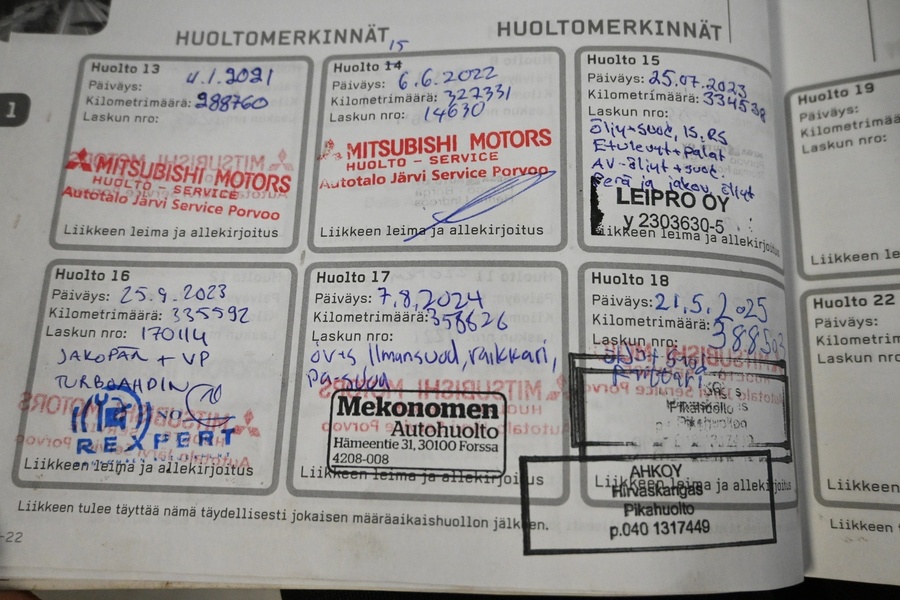 HUOLTOMERKINNÄT
HUOLTOMERKINNÄT
Huolto 13
Päiväys: 4.1.2021
Kilometrimäärä: 288760
Laskun nro:
MITSUBISHI MOTORS
HUOLTO - SERVICE
Autotalo Järvi Service Porvoo
Liikkeen leima ja allekirjoitus
15
Huolto 14
Päiväys: 6.6.2022
Kilometrimäärä: 327331
Laskun nro: 14630
MITSUBISHI MOTORS
HUOLTO - SERVICE
Autotalo Järvi Service Porvoo
Liikkeen leima ja allekirjoitus
Huolto 15
Päiväys: 25.07.2023
Kilometrimäärä: 334538
Laskun nro:
Öljyt+suod, IS, RS
Etulevyt+palat
AV-öljyt+suod.
Perä ja jakov. öljyt
LEIPRO OY
y 2303630-5
Liikkeen leima ja allekirjoitus
Huolto 16
Päiväys: 25.9.2023
Kilometrimäärä: 335592
Laskun nro: 170114
JAKOPÄÄ + VP
TURBOAHDIN
REXPERT
Liikkeen leima ja allekirjoitus
Huolto 17
Päiväys: 7.8.2024
Kilometrimäärä: 358626
Laskun nro:
öv+s Ilmansuod, raikkari,
pa-suod
Mekonomen
Autohuolto
Hämeentie 31, 30100 Forssa
4208-008
Liikkeen leima ja allekirjoitus
Huolto 18
Päiväys: 21.5.2025
Kilometrimäärä: 388503
Laskun nro:
Pikahuolto
Liikkeen leima ja allekirjoitus
AHKOY
Hirvaskangas
Pikahuolto
p.040 1317449
Liikkeen tulee täyttää nämä täydellisesti jokaisen määräaikaishuollon jälkeen.
-22
1
Huolto 19
Päiväys:
Kilometrimäärä
Laskun nro:
Liikkeen le
Huolto 22
Päiväys:
Kilometrim
Laskun nro
Liikkeen
Liikkeen